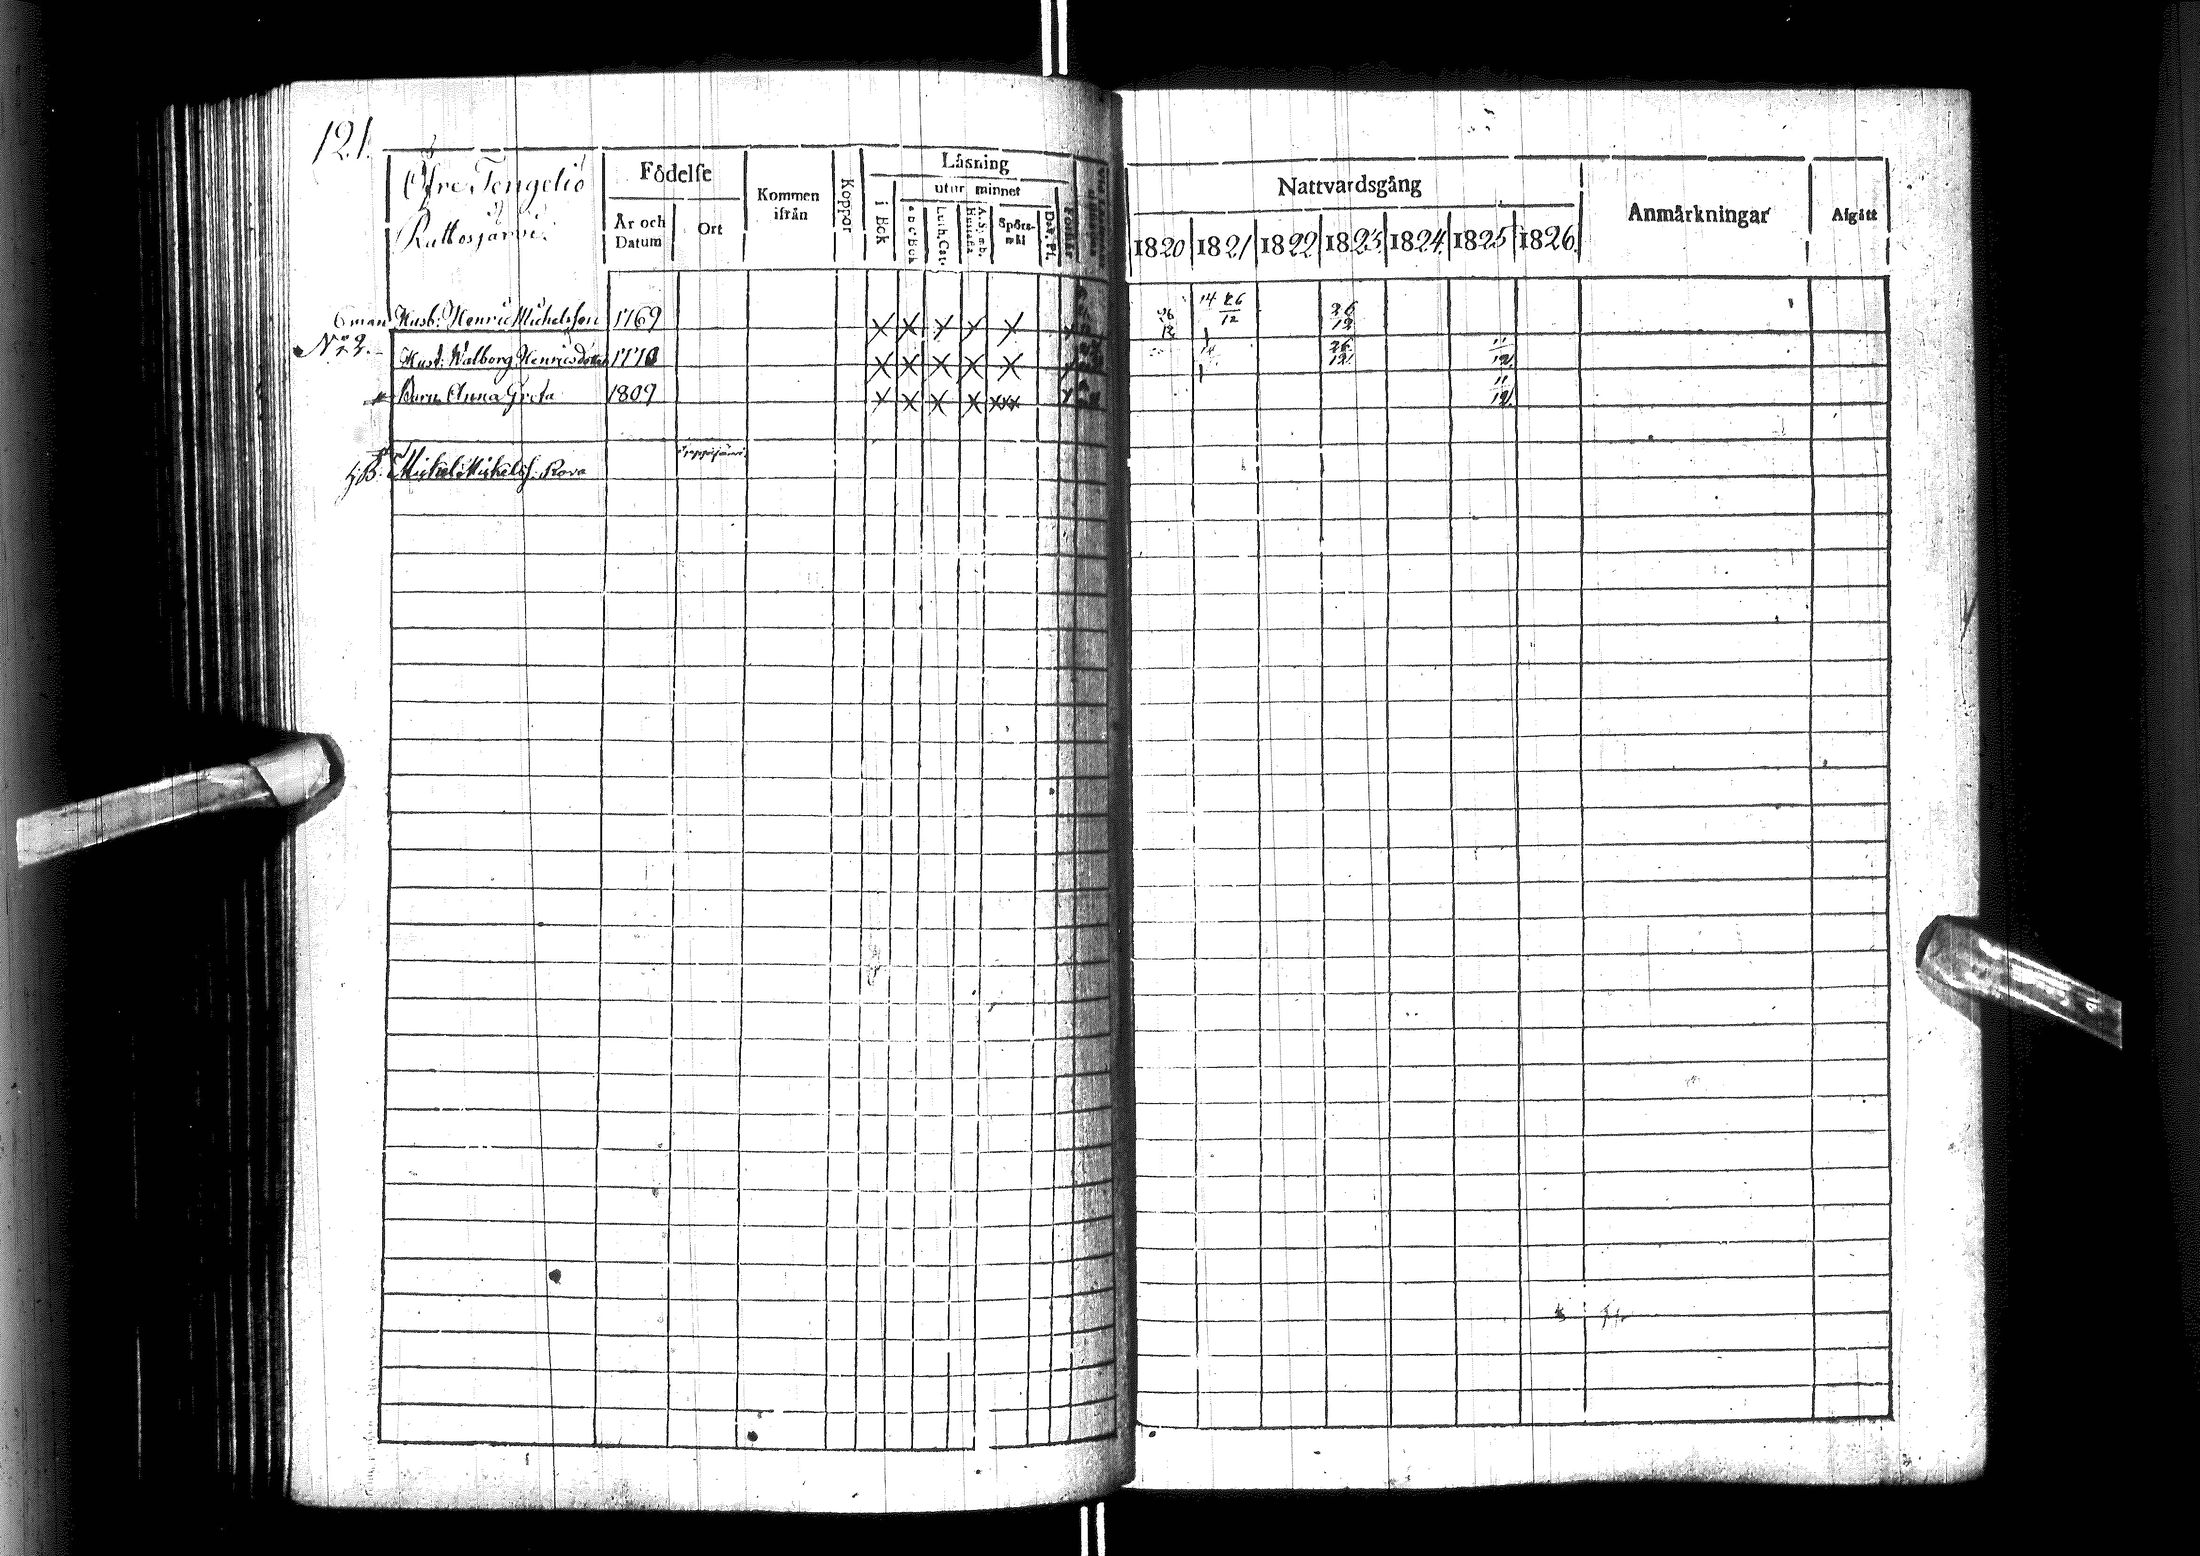 121.
Öfre Tengeliö
Rattosjärvi.
Födelse
År och Datum
Ort
Kommen ifrån
Koppor
Läsning
i Bok
utur minnet
a b c Bok
Luth. Cat.
Spörs-mål
Dav. Ps.
Förstår
Nattvardsgång
1820 1821 1822 1823. 1824. 1825 1826.
Anmärkningar
Afgått
Husb: Henric Michelsson 1769 26/12 14 26/12 26/12
No 2. Hust: Walborg Henricsdotter 14 26/12 11/12
Barn Anna Greta 1809 11/12
Michel Mickelss. Rova